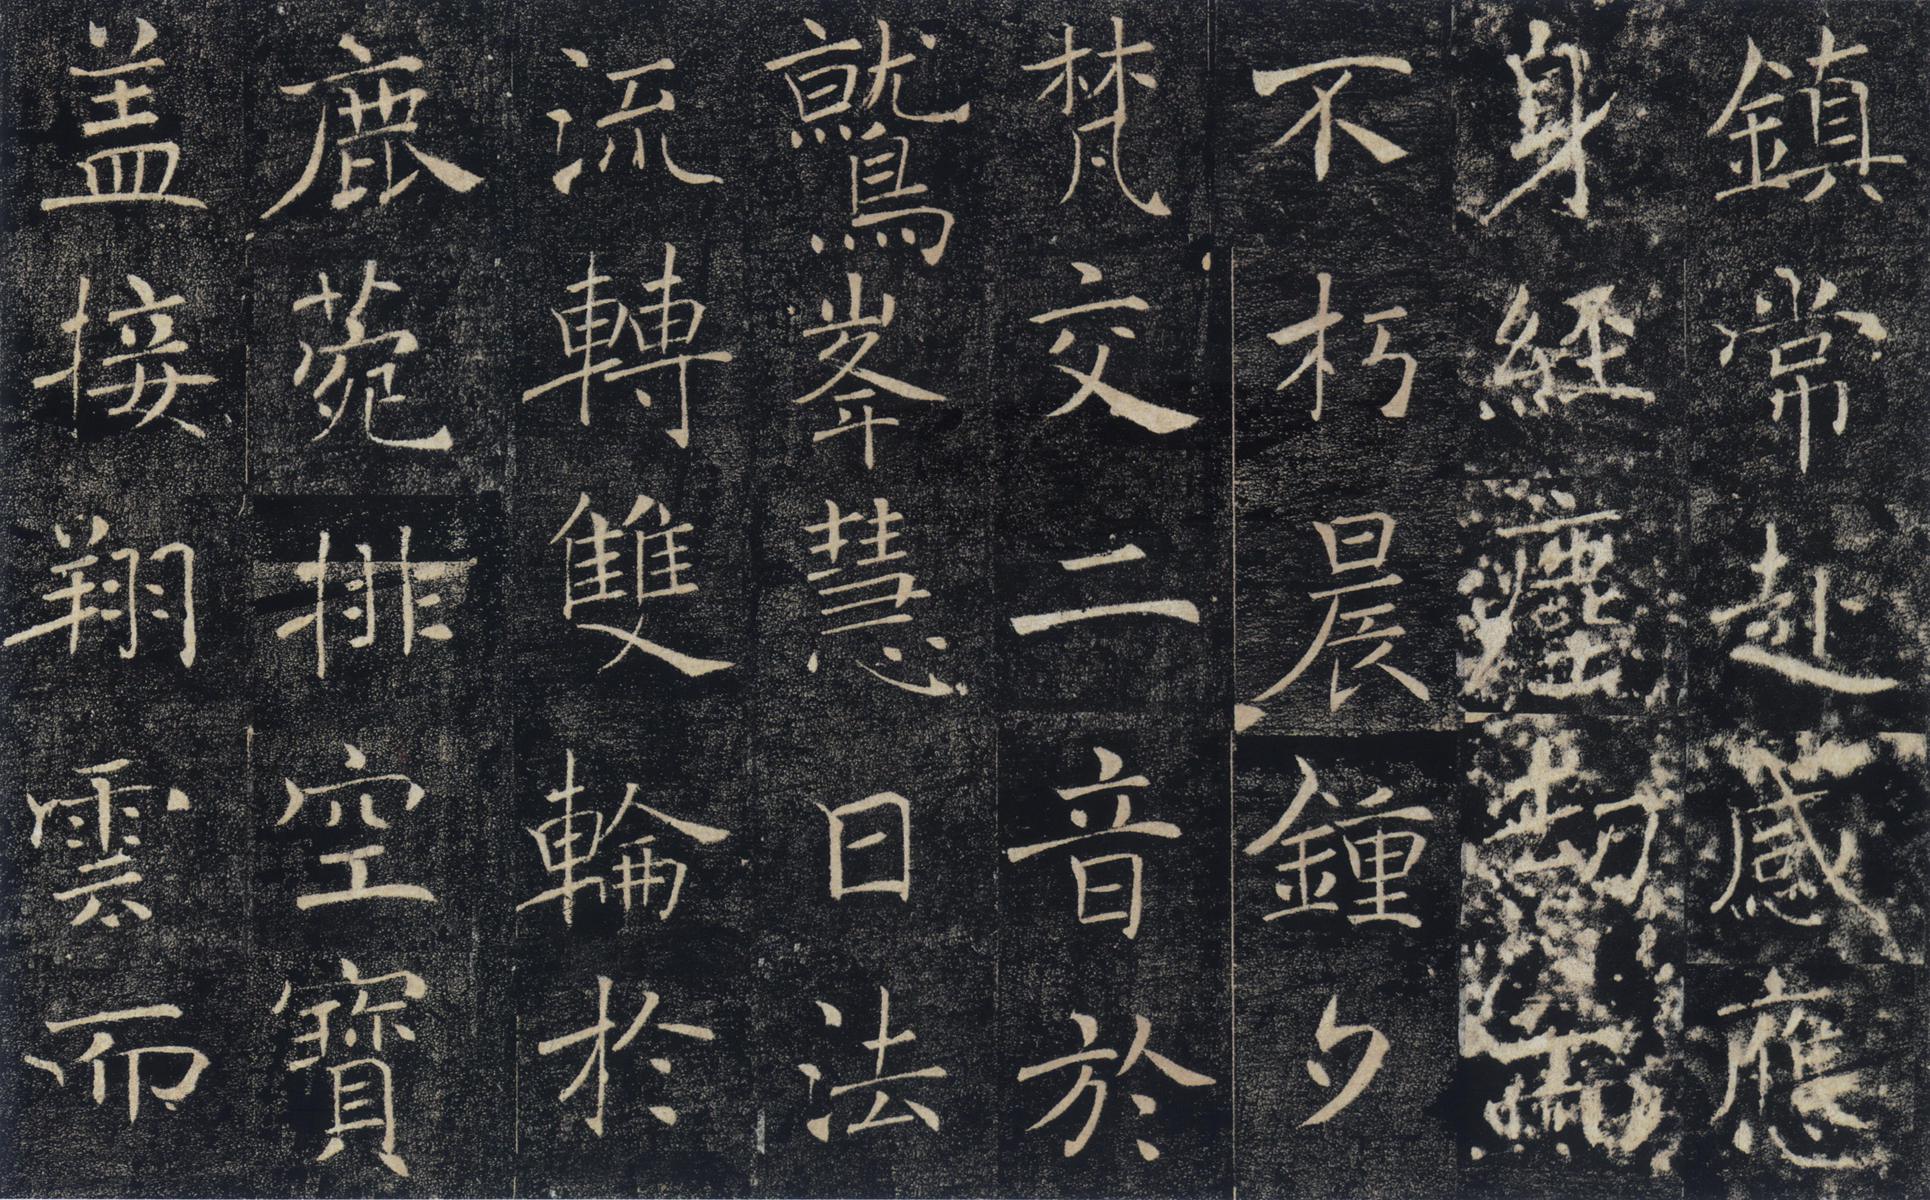 鎮常赴感應
身經塵劫而
不朽晨鍾夕
梵交二音於
鷲峯慧日法
流轉雙輪扵
鹿菀排空寶
盖接翔雲而